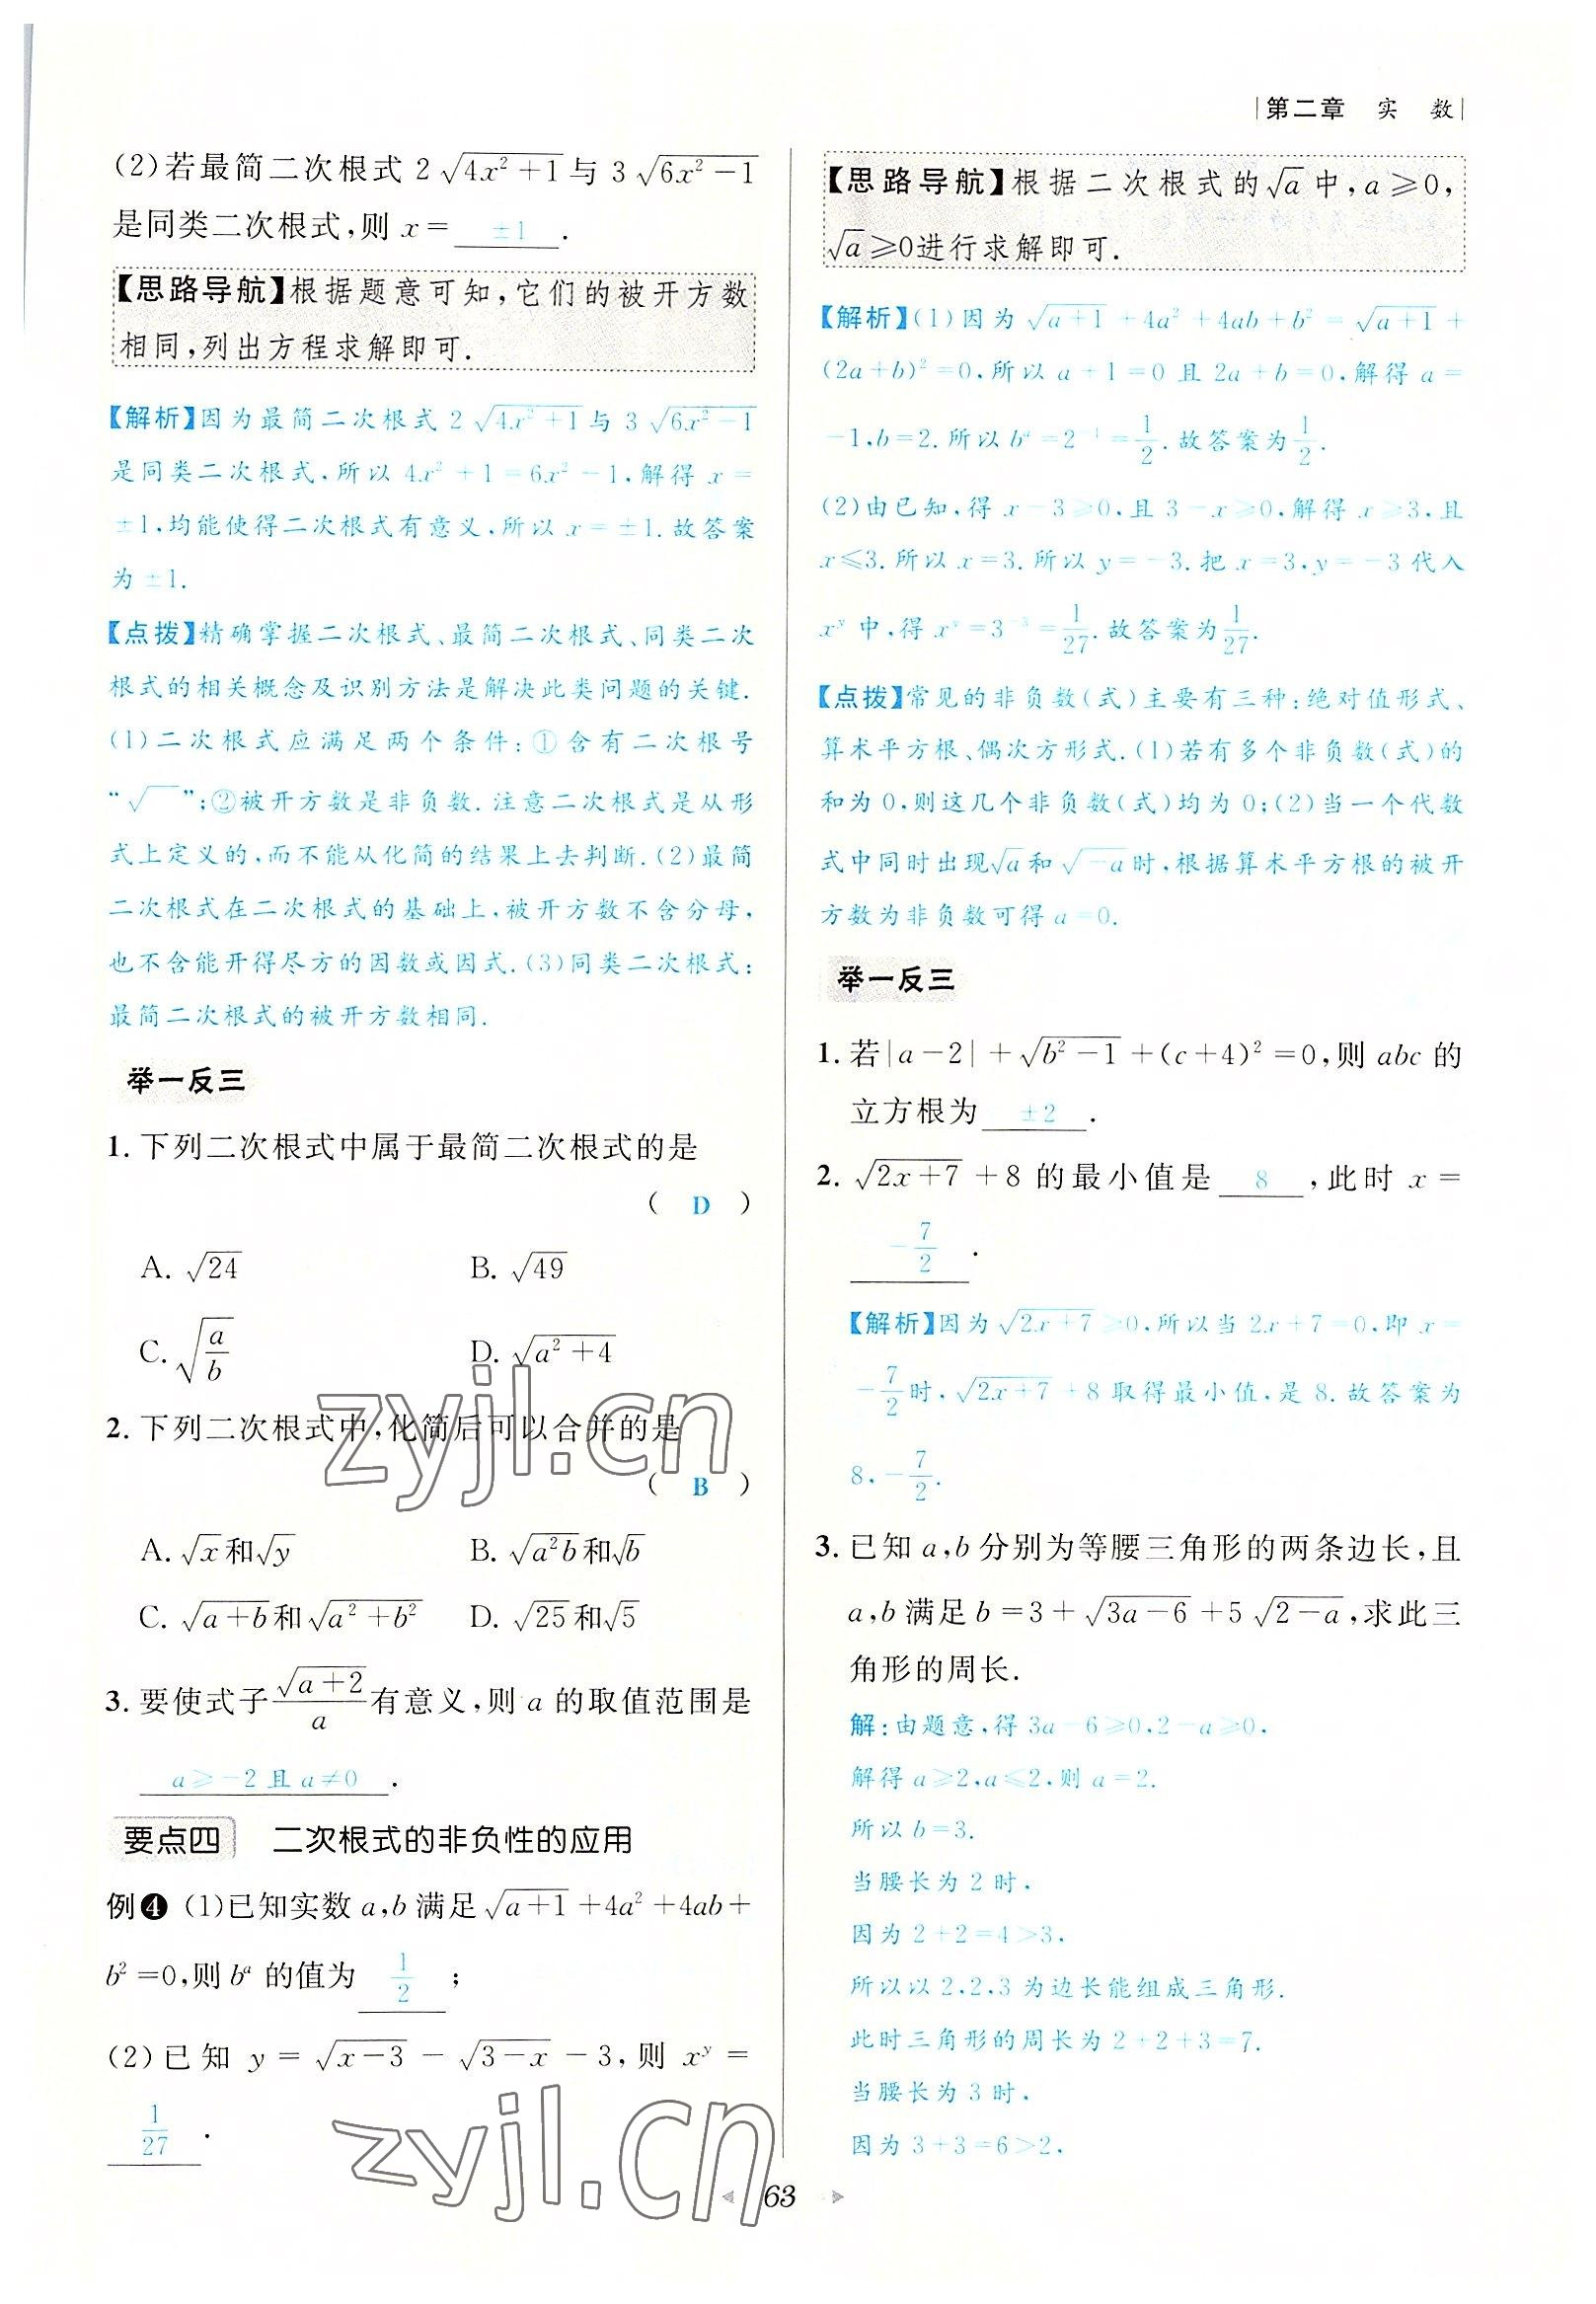 第二章 实 数
(2)若最简二次根式 2√(4x²+1)与 3√(6x²-1)
是同类二次根式,则 x= ±1 .
【思路导航】根据题意可知,它们的被开方数
相同,列出方程求解即可.
【解析】因为最简二次根式 2√(4x²+1)与 3√(6x²-1)
是同类二次根式,所以 4x²+1=6x²-1,解得 x=
±1,均能使得二次根式有意义,所以 x=±1.故答案
为±1.
【点拨】精确掌握二次根式、最简二次根式、同类二次
根式的相关概念及识别方法是解决此类问题的关键.
(1)二次根式应满足两个条件:①含有二次根号
“√ ”;②被开方数是非负数.注意二次根式是从形
式上定义的,而不能从化简的结果上去判断.(2)最简
二次根式在二次根式的基础上,被开方数不含分母,
也不含能开得尽方的因数或因式.(3)同类二次根式:
最简二次根式的被开方数相同.
举一反三
1. 下列二次根式中属于最简二次根式的是
( D )
A. √24 B. √49
C. √(a/b) D. √(a²+4)
2. 下列二次根式中,化简后可以合并的是
( B )
A. √x和√y B. √(a²b)和√b
C. √(a+b)和√(a²+b²) D. √25和√5
3. 要使式子√(a+2)/a有意义,则 a 的取值范围是
a≥-2且a≠0 .
要点四 二次根式的非负性的应用
例❹ (1)已知实数 a,b 满足√(a+1)+4a²+4ab+
b²=0,则bᵃ 的值为 1/2 ;
(2)已知 y=√(x-3)-√(3-x)-3,则 xʸ=
1/27 .
【思路导航】根据二次根式的√a中,a≥0,
√a≥0进行求解即可.
【解析】(1)因为√(a+1)+4a²+4ab+b²=√(a+1)+
(2a+b)²=0,所以 a+1=0 且 2a+b=0,解得 a=
-1,b=2.所以 bᵃ=2⁻¹=1/2.故答案为1/2.
(2)由已知,得 x-3≥0,且 3-x≥0,解得 x≥3,且
x≤3.所以 x=3.所以 y=-3.把 x=3,y=-3 代入
xʸ 中,得 xʸ=3⁻³=1/27.故答案为1/27.
【点拨】常见的非负数(式)主要有三种:绝对值形式、
算术平方根、偶次方形式.(1)若有多个非负数(式)的
和为 0,则这几个非负数(式)均为 0;(2)当一个代数
式中同时出现√a和√(-a)时,根据算术平方根的被开
方数为非负数可得 a=0.
举一反三
1. 若|a-2|+√(b²-1)+(c+4)²=0,则 abc 的
立方根为 ±2 .
2. √(2x+7)+8 的最小值是 8 ,此时 x=
-7/2 .
【解析】因为√(2x+7)≥0,所以当 2x+7=0,即 x=
-7/2时,√(2x+7)+8取得最小值,是 8.故答案为
8,-7/2.
3. 已知 a,b分别为等腰三角形的两条边长,且
a,b满足 b=3+√(3a-6)+5√(2-a),求此三
角形的周长.
解:由题意,得 3a-6≥0,2-a≥0,
解得 a≥2,a≤2,则 a=2.
所以 b=3.
当腰长为 2 时,
因为 2+2=4>3,
所以以 2,2,3 为边长能组成三角形.
此时三角形的周长为 2+2+3=7.
当腰长为 3 时,
因为 3+3=6>2,
63
zyjl.cn
zyjl.cn